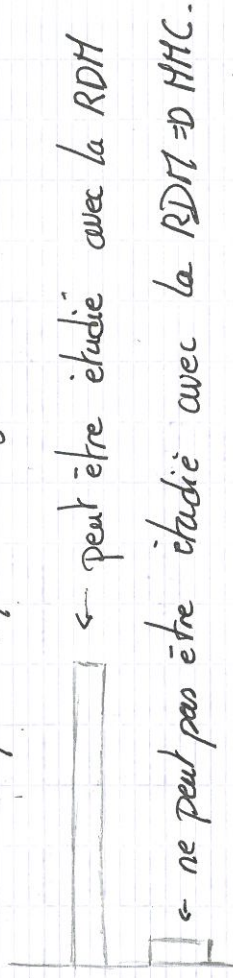 ← peut être étudié avec la RDM
← ne peut pas être étudié avec la RDM => MMC.